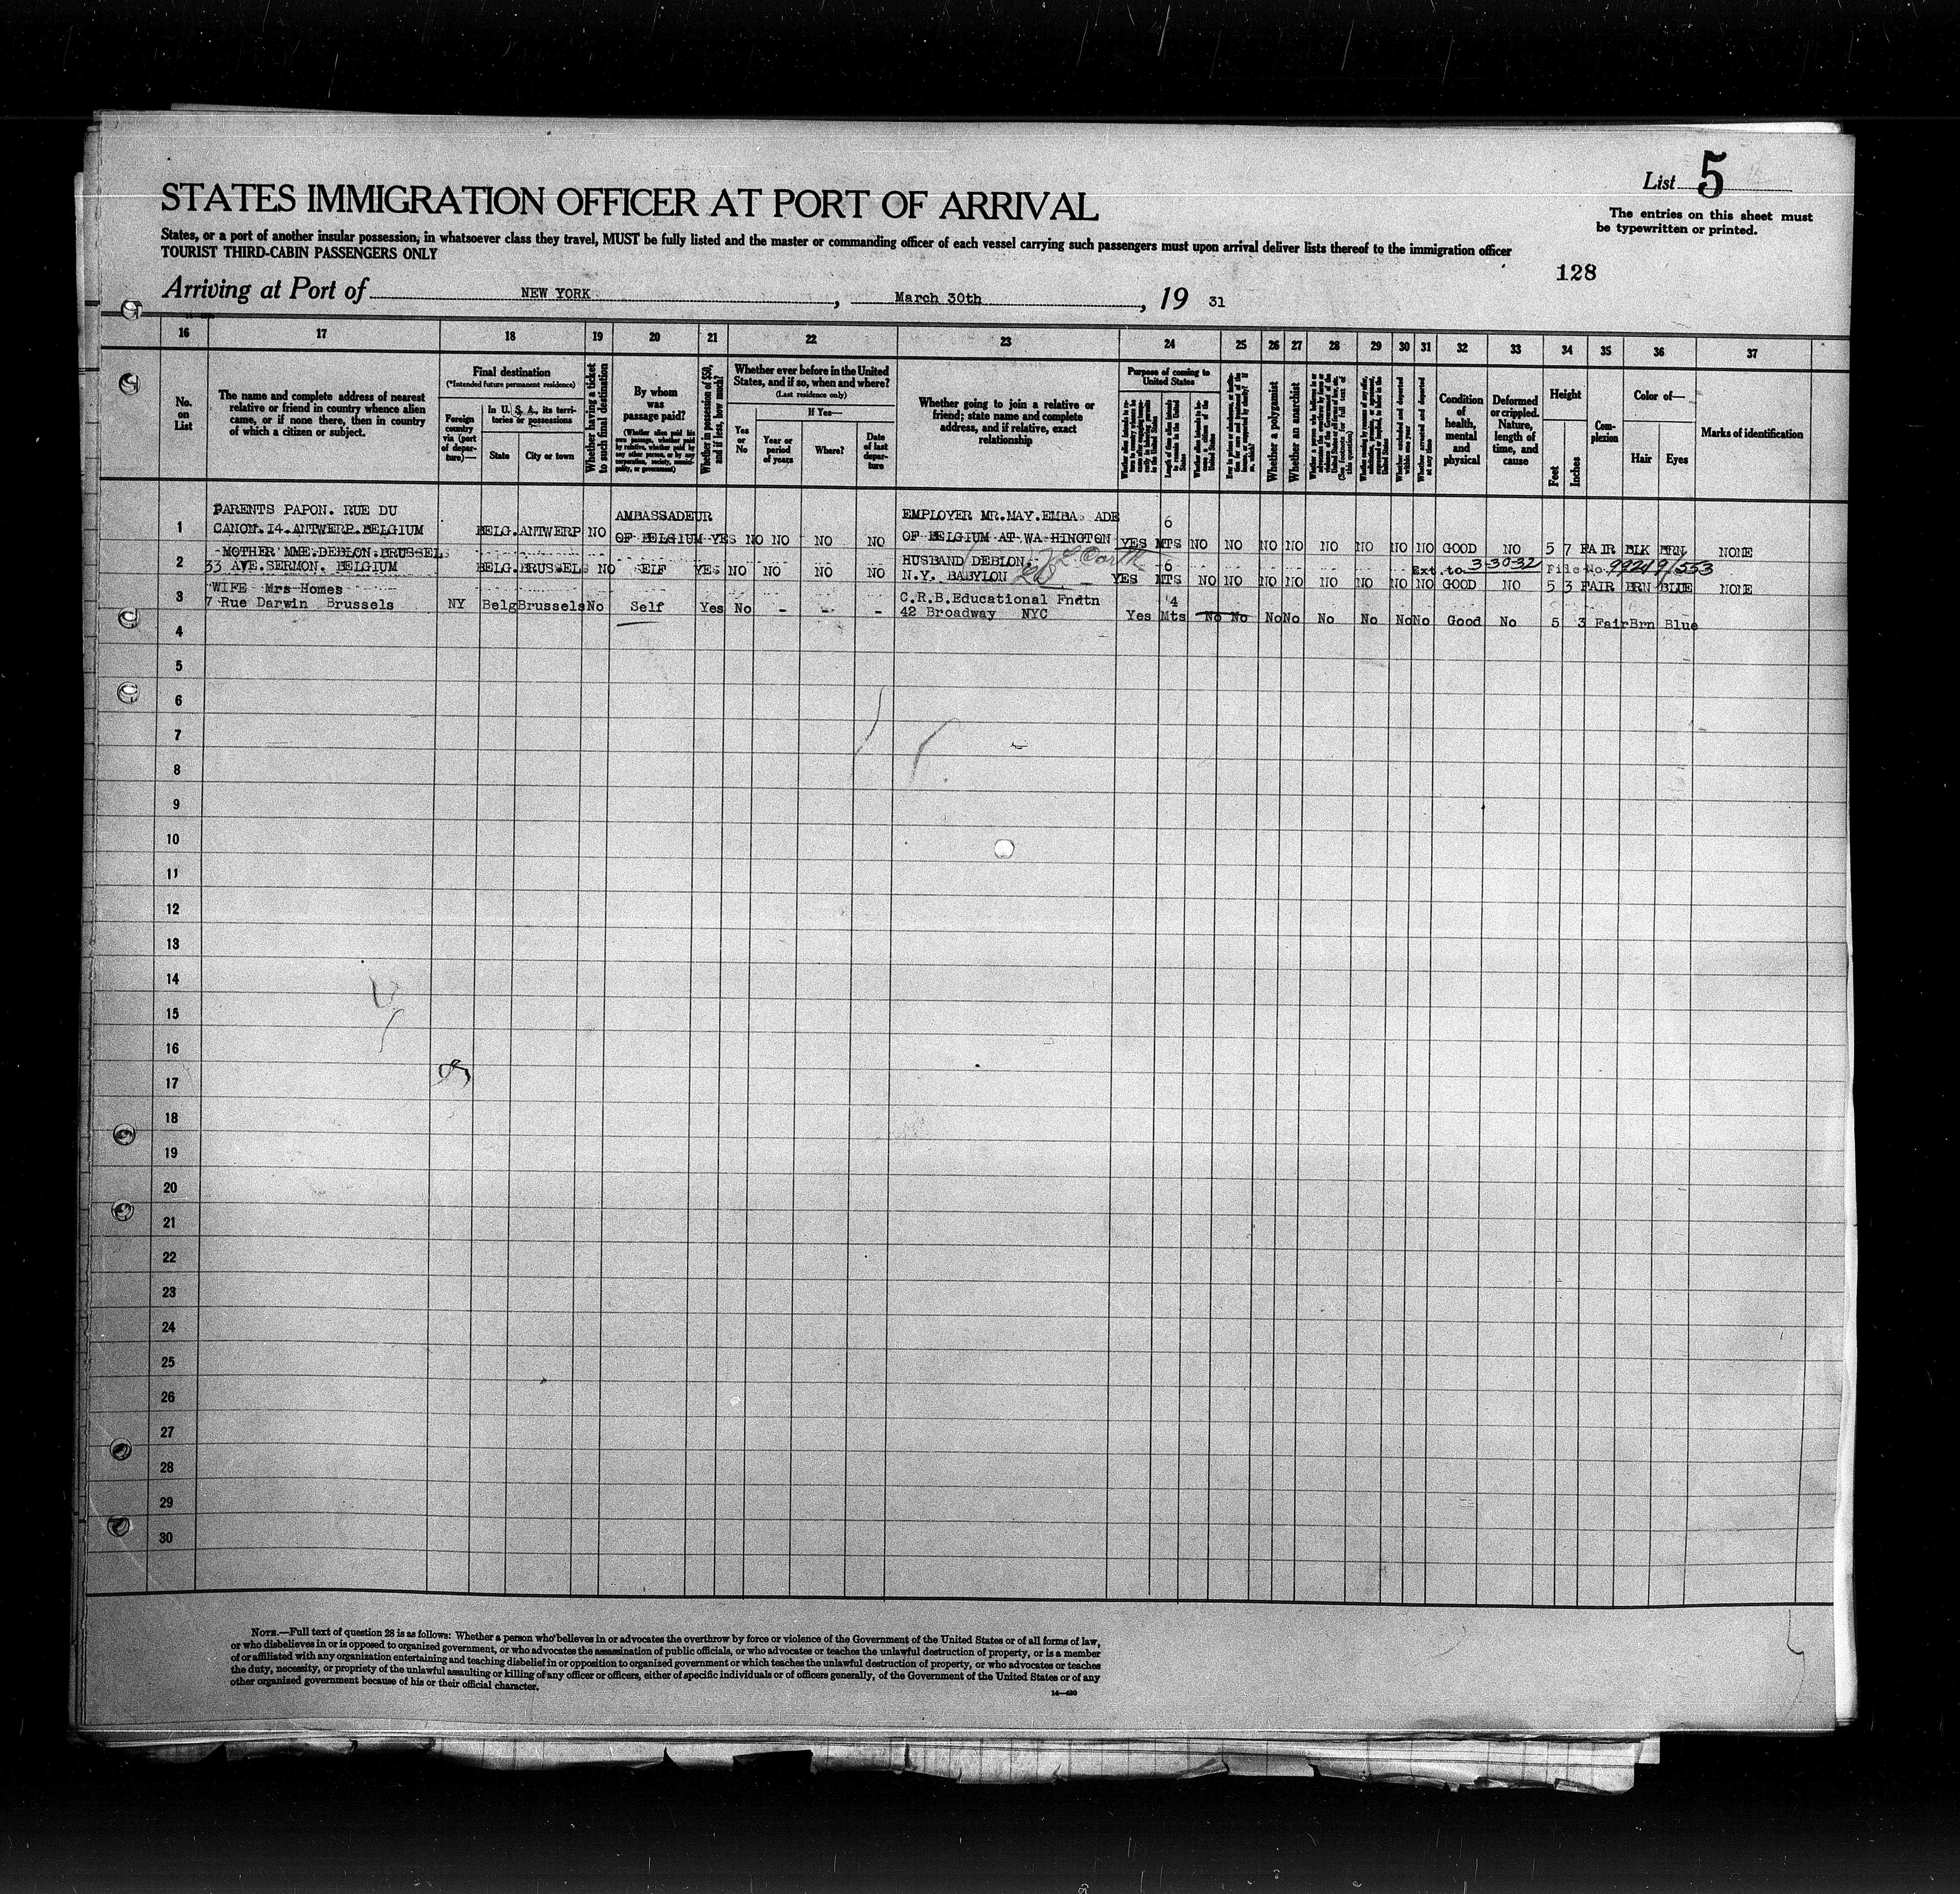 List 5
STATES IMMIGRATION OFFICER AT PORT OF ARRIVAL
The entries on this sheet must
be typewritten or printed.
States, or a port of another insular possession, in whatsoever class they travel, MUST be fully listed and the master or commanding officer of each vessel carrying such passengers must upon arrival deliver lists thereof to the immigration officer
TOURIST THIRD-CABIN PASSENGERS ONLY
128
Arriving at Port of NEW YORK, March 30th, 19 31
16 17 18 19 20 21 22 23 24 25 26 27 28 29 30 31 32 33 34 35 36 37
No.
on
List
The name and complete address of nearest
relative or friend in country whence alien
came, or if none there, then in country
of which a citizen or subject.
Final destination
(*Intended future permanent residence)
Foreign
country
via (port
of depar-
ture)—
In U. S. A., its terri-
tories or possessions
State
City or town
Whether having a ticket
to such final destination
By whom
was
passage paid?
(Whether alien paid his
own passage, whether paid
by relative, whether paid by
any other person, or by any
corporation, society, munici-
pality, or government)
Whether in possession of $50,
and if less, how much?
Whether ever before in the United
States, and if so, when and where?
(Last residence only)
Yes
or
No
If Yes—
Year or
period
of years
Where?
Date
of last
depar-
ture
Whether going to join a relative or
friend; state name and complete
address, and if relative, exact
relationship
Purpose of coming to
United States
Whether a polygamist
Whether an anarchist
Condition
of
health,
mental
and
physical
Deformed
or crippled.
Nature,
length of
time, and
cause
Height
Feet
Inches
Com-
plexion
Color of—
Hair
Eyes
Marks of identification
PARENTS PAPON. RUE DU AMBASSADEUR EMPLOYER MR.MAY.EMBA ADE 6
1 CANON.I4.ANTWERP.BELGIUM BELG.ANTWERP NO OF BELGIUM YES NO NO NO NO OF BELGIUM AT WA HINGTON YES MTS NO NO NO NO NO NO NO NO GOOD NO 5 7 FAIR BLK BRN NONE
MOTHER MME.DEBLON.BRUSSELS HUSBAND DEBLON. 6 Ext. to 3-30-32 File No. 99249/553
2 33 AVE.SERMON. BELGIUM BELG.BRUSSELS NO SELF YES NO NO NO NO N.Y. BABYLON YES MTS NO NO NO NO NO NO NO NO GOOD NO 5 3 FAIR BRN BLUE NONE
WIFE Mrs Homes C.R.B.Educational Fndtn 4
3 7 Rue Darwin Brussels NY Belg Brussels No Self Yes No - - - 42 Broadway NYC Yes Mts No No No No No No No No Good No 5 3 Fair Brn Blue
4
5
6
7
8
9
10
11
12
13
14
15
16
17
18
19
20
21
22
23
24
25
26
27
28
29
30
NOTE.—Full text of question 28 is as follows: Whether a person who believes in or advocates the overthrow by force or violence of the Government of the United States or of all forms of law,
or who disbelieves in or is opposed to organized government, or who advocates the assassination of public officials, or who advocates or teaches the unlawful destruction of property, or is a member
of or affiliated with any organization entertaining and teaching disbelief in or opposition to organized government or which teaches the unlawful destruction of property, or who advocates or teaches
the duty, necessity, or propriety of the unlawful assaulting or killing of any officer or officers, either of specific individuals or of officers generally, of the Government of the United States or of any
other organized government because of his or their official character.